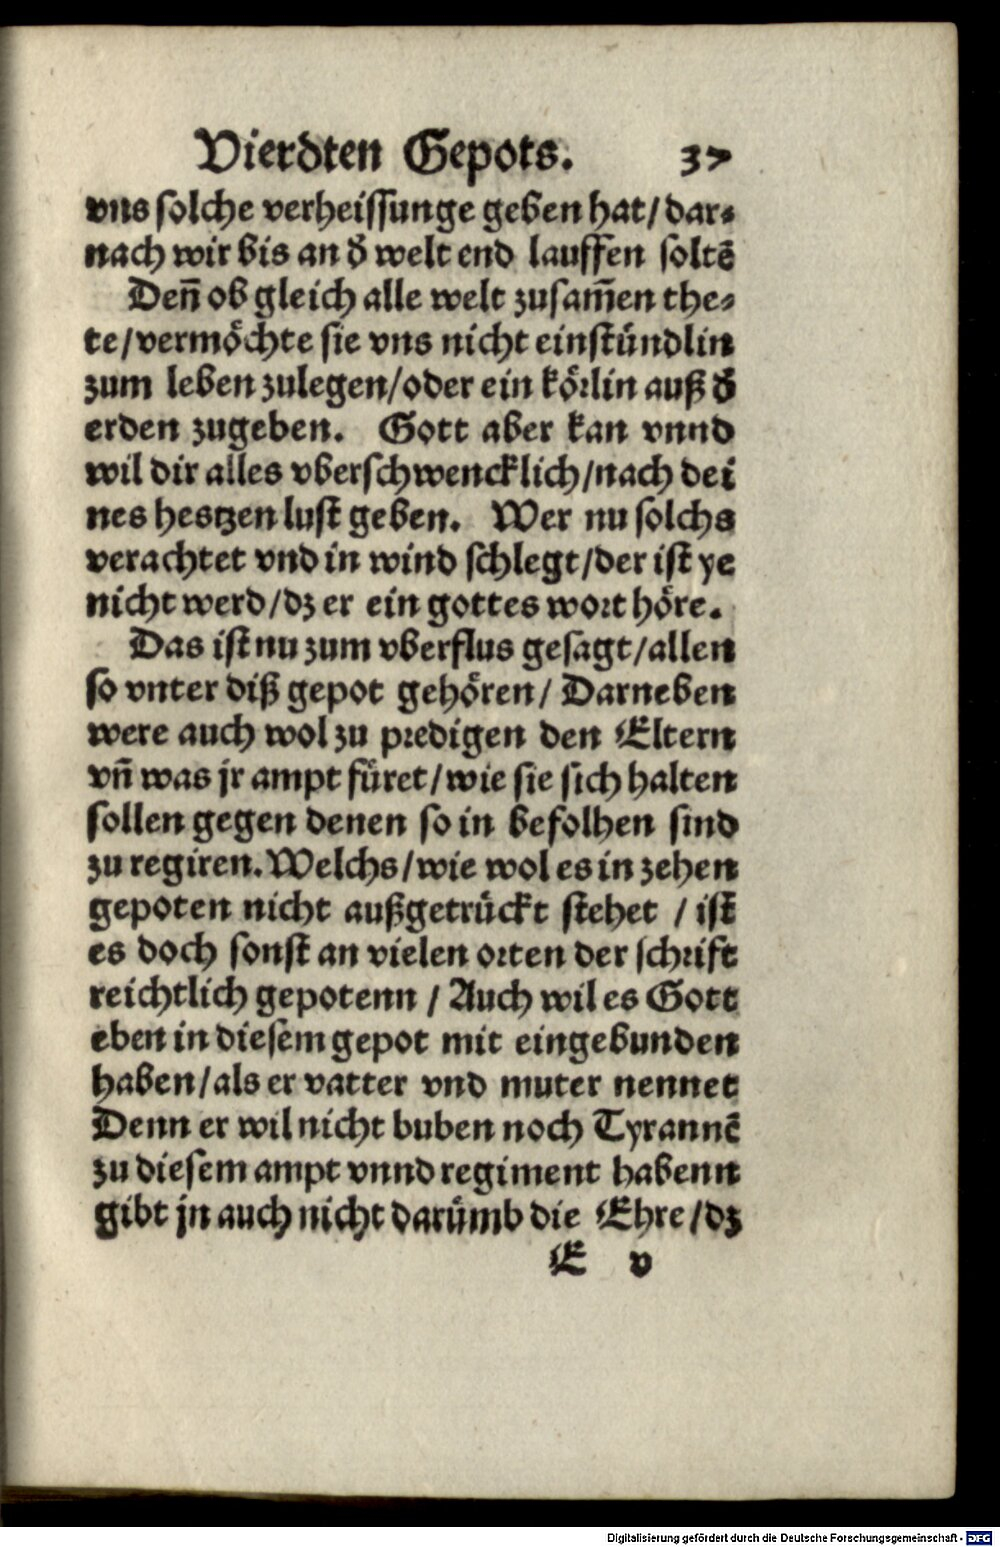 Vierdten Gepots. 37
vns solche verheissunge geben hat/dar⸗
nach wir bis an d̄ welt end lauffen soltē
Deñ ob gleich alle welt zusam̄en the⸗
te/vermöchte sie vns nicht ein stündlin
zum leben zulegen/oder ein körlin auß d̄
erden zugeben. Gott aber kan vnnd
wil dir alles vberschwencklich/nach dei
nes hestzen lust geben. Wer nu solchs
verachtet vnd in wind schlegt/der ist ye
nicht werd/dz er ein gottes wort höre.
Das ist nu zum vberflus gesagt/allen
so vnter diß gepot gehören/ Darneben
were auch wol zu predigen den Eltern
vñ was jr ampt füret/wie sie sich halten
sollen gegen denen so in befolhen sind
zu regiren. Welchs/wie wol es in zehen
gepoten nicht außgetrückt stehet / ist
es doch sonst an vielen orten der schrift
reichtlich gepotenn / Auch wil es Gott
eben in diesem gepot mit eingebunden
haben/als er vatter vnd muter nennet
Denn er wil nicht buben noch Tyrannē
zu diesem ampt vnnd regiment habenn
gibt jn auch nicht darümb die Ehre/dz
E v
Digitalisierung gefördert durch die Deutsche Forschungsgemeinschaft - DFG